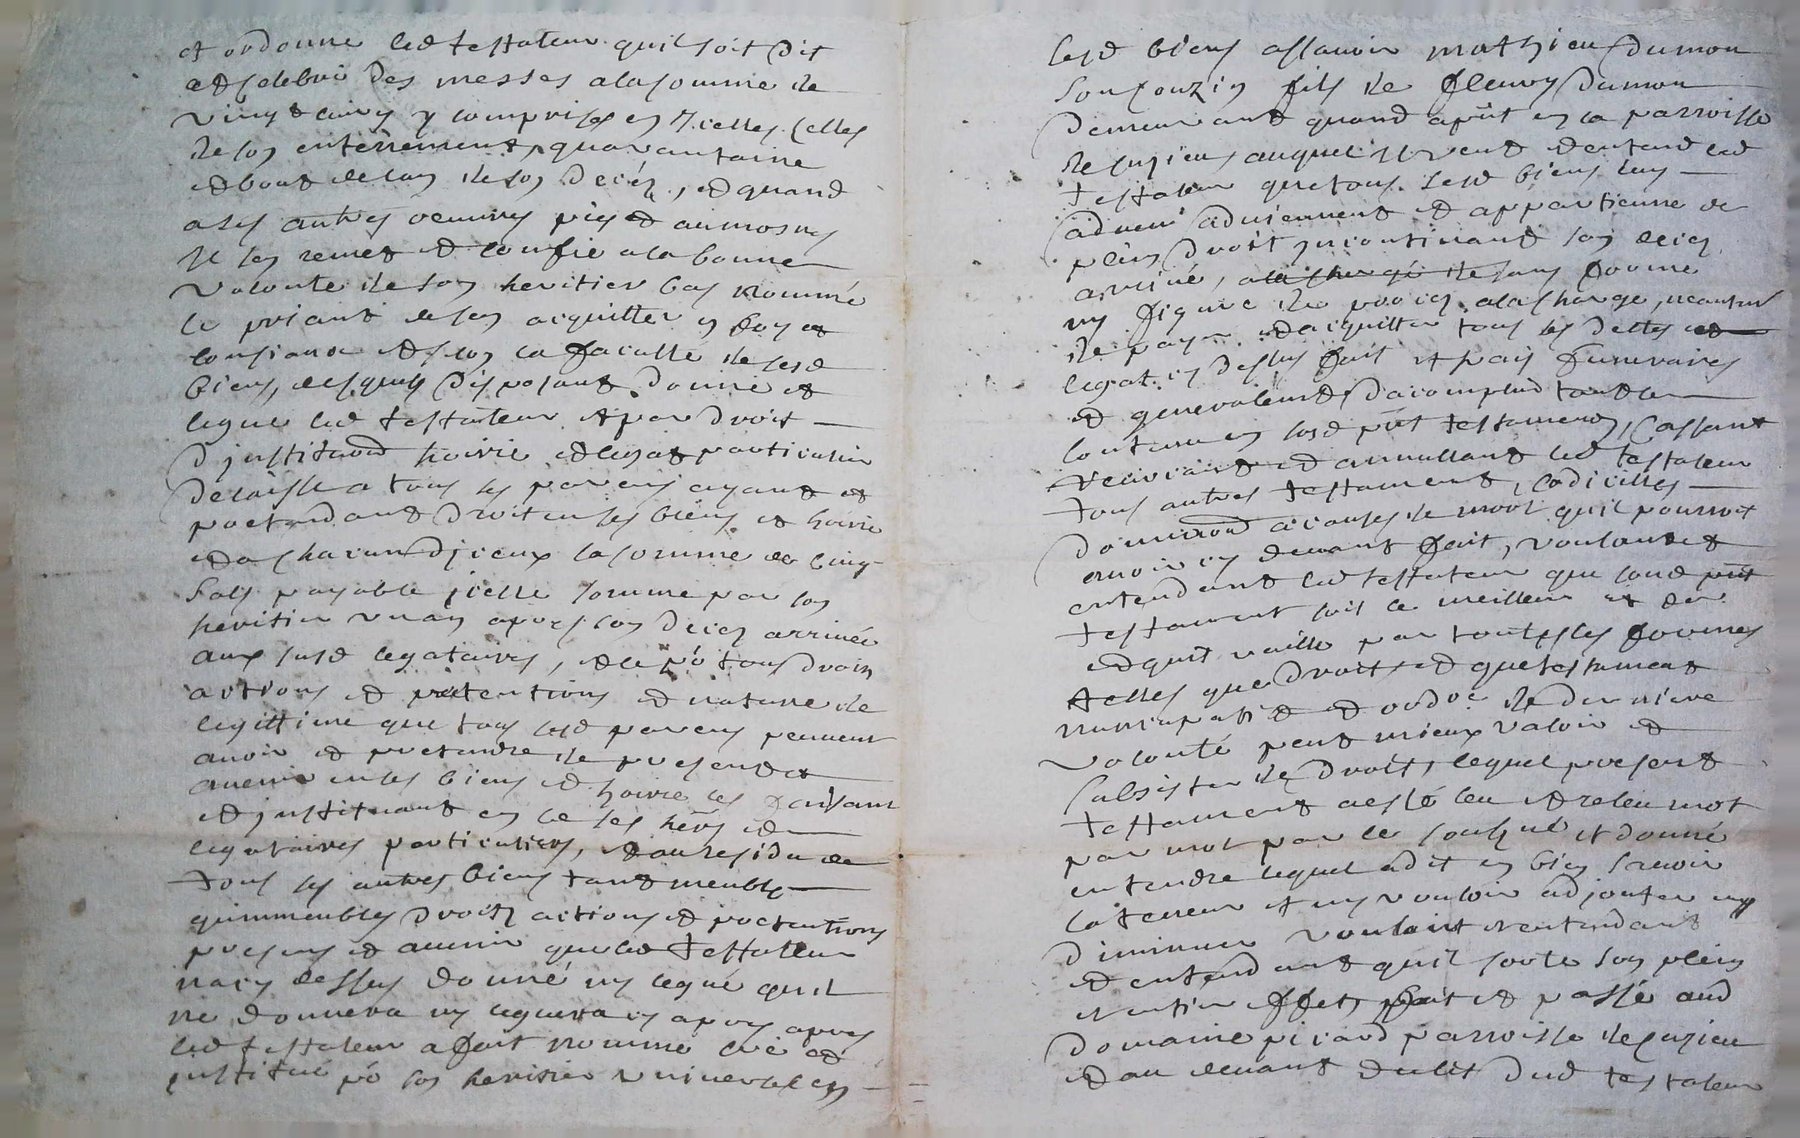 et ordonne led testateur quil soit dit
et celebré des messes a la somme de
vingt livres y comprises en icelles celles
de son enterrement, quarantaine
et bout de lan de son decéz, et quand
a ses autres oeuvres pies et aumosnes
il sen remet et confie a la bonne
volonté de son heritier bas nommé
le priant de sen acquitter en foy et
consiance et selon la faculté de sesd
biens, desquels disposant donne et
legue led testateur et par droit
dinstitution hoirie et legat particulier
delaisse a tous ses parens ayant et
pretendant droit en ses biens et hoirie
et a chacun diceux la somme de cinq
sols payable icelle somme par son
heritier un an apres son decez arrivée
aux susd legataires, et ce pr tous droits
actions et pretentions et nature de
legittime que tous sesd parens peuvent
avoir et pretendre de present et
avenir en ses biens et hoirie les faisant
et instituant en ce ses hers et
legataires particuliers, et au residu de
tous ses autres biens tant meubles
quimmeubles droits actions et pretentions
presens et avenir que led testateur
na cy dessus donné ny legué quil
ne donnera ny leguera cy apres
led testateur a fait nommé creé et
institué pr son heritier universel en
sesd biens assavoir mathieu dumon
son couzin fils de fleury dumon
demeurant quand apnt en la parroisse
de auquel il veut et entend led
testateur que tous sesd biens luy
advienent et appartienne de
plein droit incontinant son decez
arrivé, a la charge de sans forme
ny figure de procez a la charge neantmt
de payer et acquitter tous ses dettes et
legat cy dessus fait et frais funeraires
et generalement daccomplir tout le
contenu en sond pnt testament, cassant
revocant et annullant led testateur
tous autres testament, codicilles
donnaon a causes de mort quil pourroit
avoir cy devant fait, voulant et
entendant led testateur que sond pnt
testament soit le meilleur et der
et quil vaille par toutes les formes
telles que droit et que testament
nuncupatif et ordre de derniere
volonté peut mieux valoir et
subsister de droit, lequel present
testament a esté leu et releu mot
par mot par le soubsné et donné
entendre lequel a dit en bien scavoir
la teneur et ny vouloir adjouter ny
diminuer voulant et entendant
et entendant quil sorte son plein
et entier effet, fait et passé aud
domaine picard parroisse de
et au devant du lit dud testateur